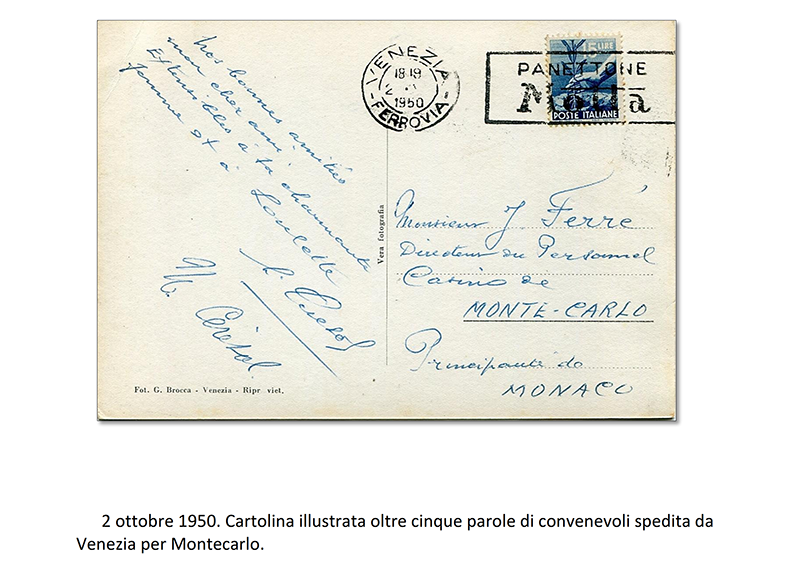 Nos bonnes amitiés
mon cher ami
Extensibles à ta charmante
femme et à Loulette
M. Cérésol
VENEZIA
18-19
1950
FERROVIA
15 LIRE
POSTE ITALIANE
PANETTONE
Motta
Vera fotografia
Monsieur J Ferré
Directeur du Personnel
Casino de
MONTE-CARLO
Principauté de
MONACO
Fot. G. Brocca - Venezia - Ripr viet.
2 ottobre 1950. Cartolina illustrata oltre cinque parole di convenevoli spedita da
Venezia per Montecarlo.